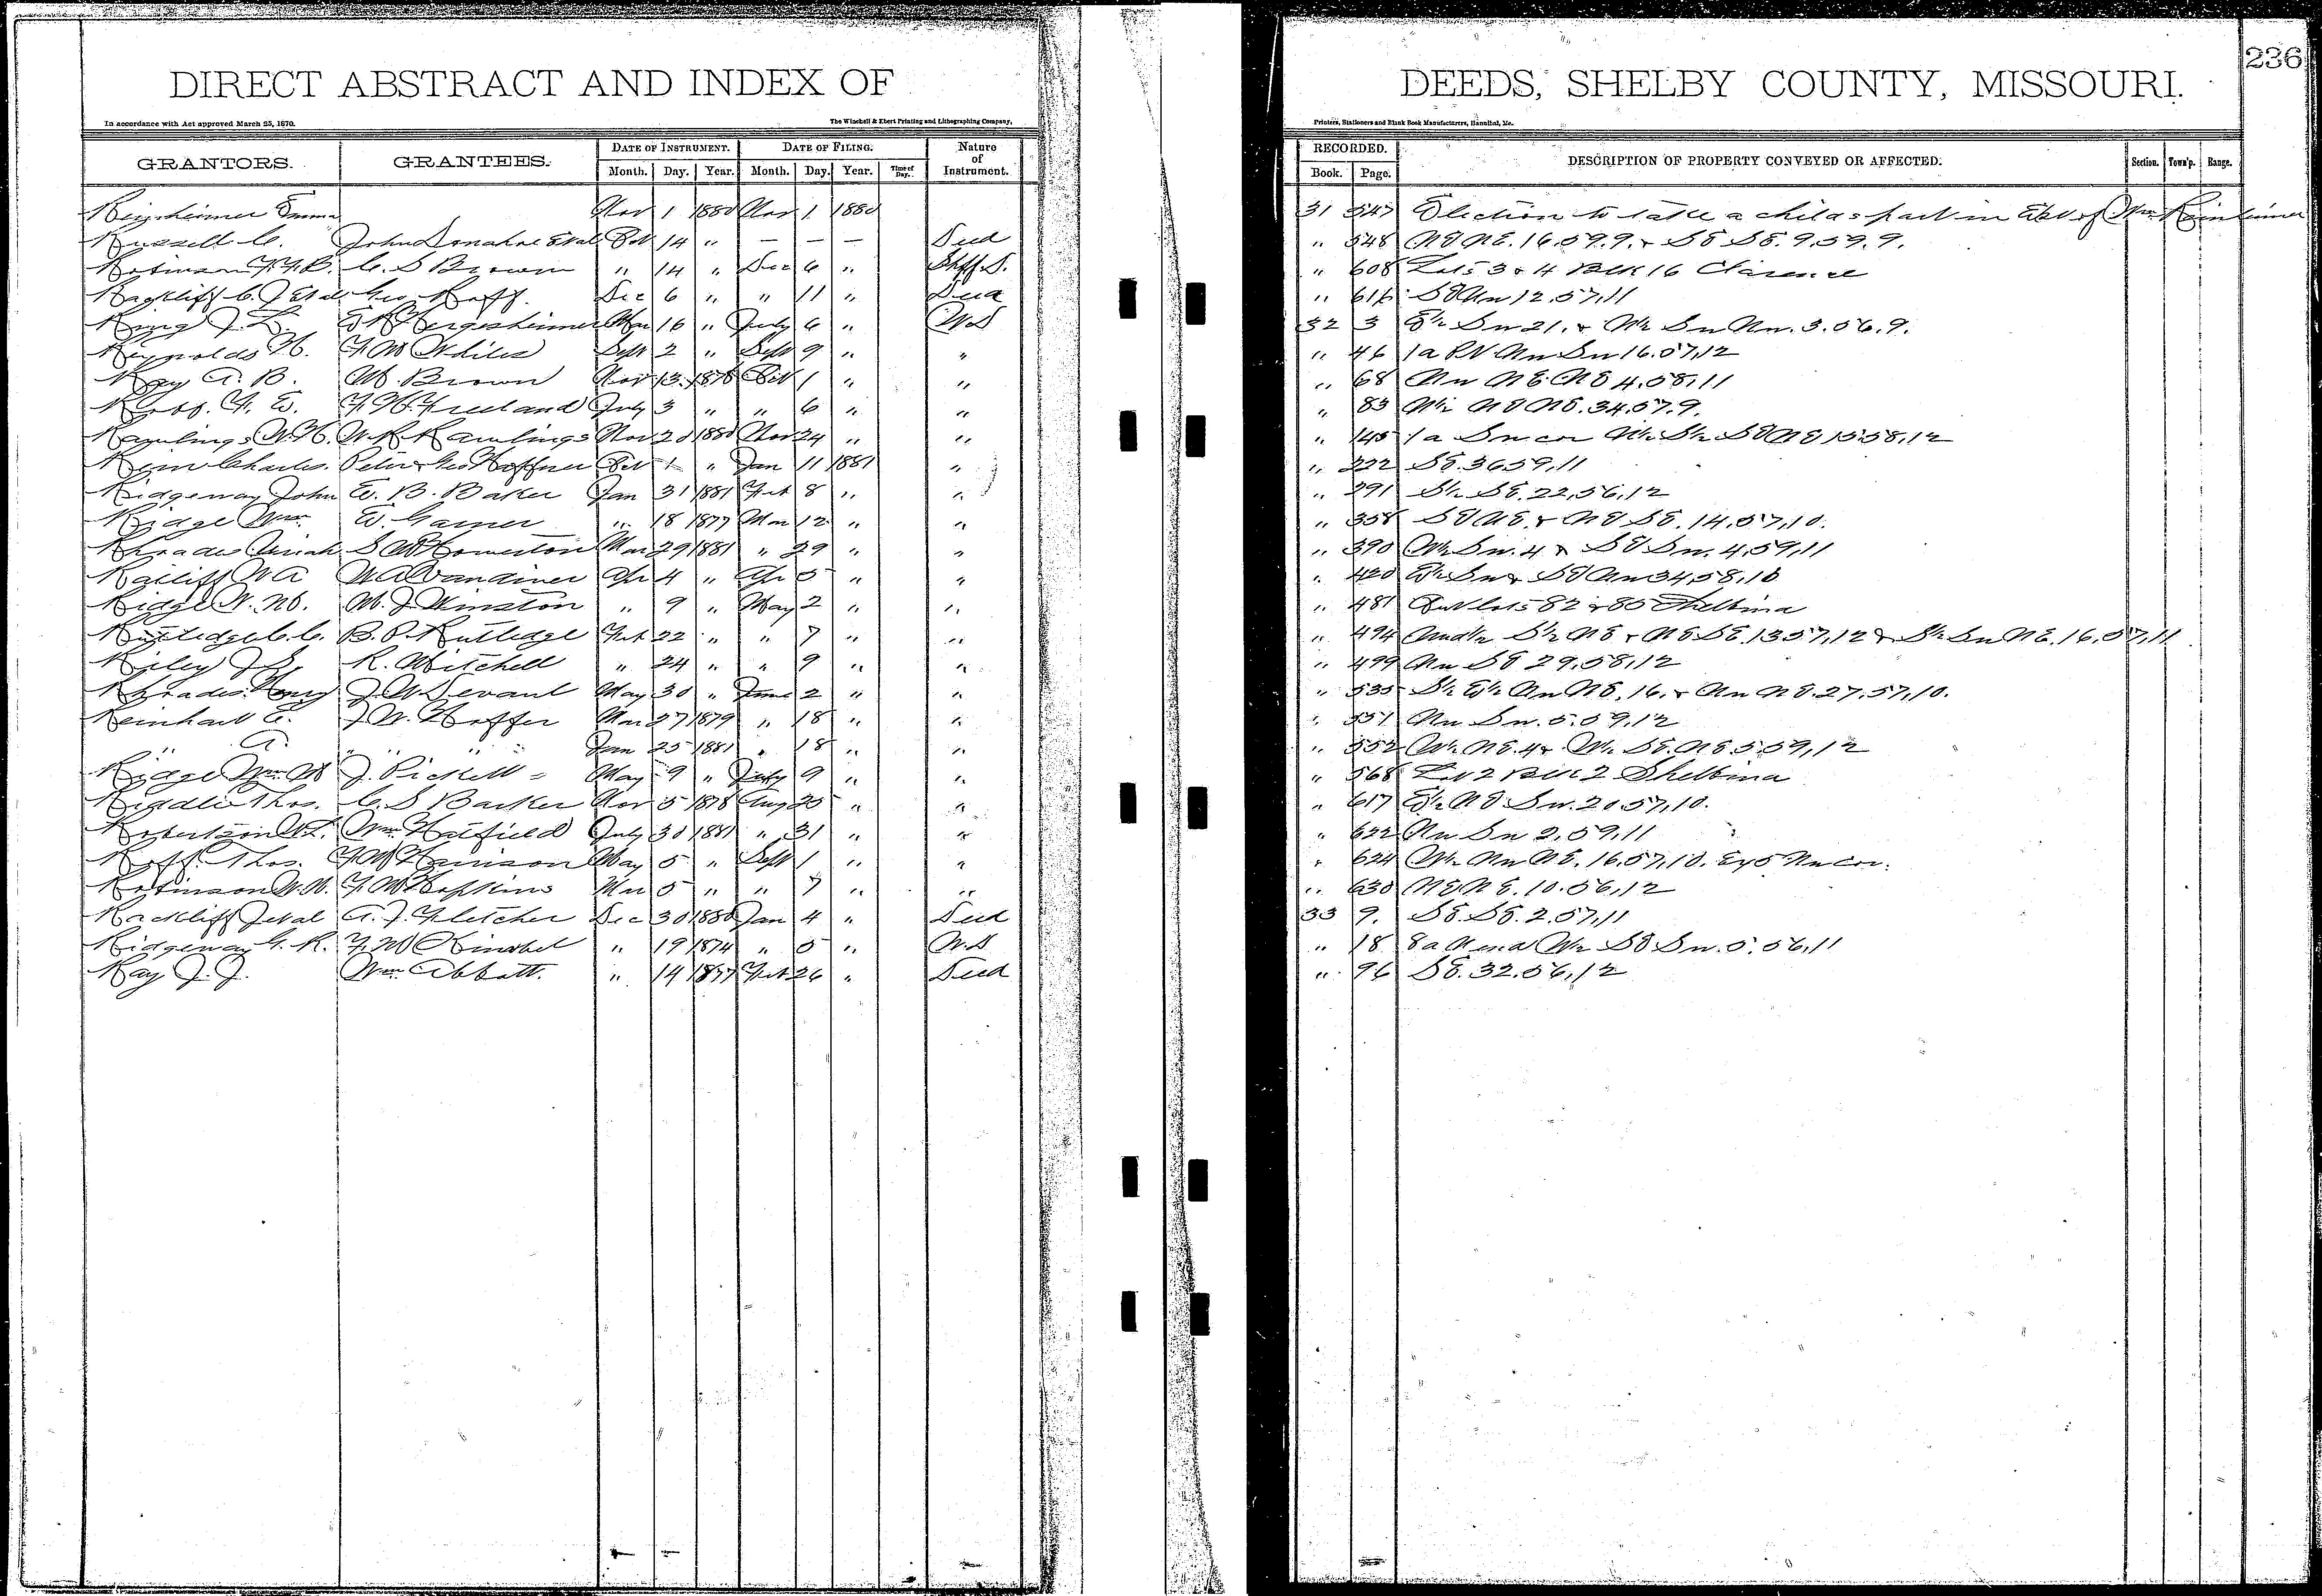 DIRECT ABSTRACT AND INDEX OF DEEDS, SHELBY COUNTY, MISSOURI. 236
In accordance with Act approved March 25, 1870. The Winchell & Ebert Printing and Lithographing Company, Printers, Stationers and Blank Book Manufacturers, Hannibal, Mo.
GRANTORS. GRANTEES. DATE OF INSTRUMENT. DATE OF FILING. Nature of Instrument. RECORDED. DESCRIPTION OF PROPERTY CONVEYED OR AFFECTED. Section. Town'p. Range.
Month. Day. Year. Month. Day. Year. Time of Day. Book. Page.
Emma Nov 1 1880 Nov 1 1880 31 547 Election to take a childs part in Est of Wm
Russell C. John Donahoe Et al Oct 14 " — — — Deed " 548 NE NE. 16.59.9. & SE SE. 9.59.9.
Robinson C. S Brown " 14 " Dec 6 " Shff. D. " 608 Lots 3 & 4 Blk 16 Clarence
Rackliff C. J Et al Geo. Roff. Dec 6 " " 11 " Deed " SE Nw 12.57.11
Ring J. L. Hergesheimer Mar 16 " July 6 " WD 32 3 E½ Sw 21. & W½ Sw Nw. 3.56.9.
Reynolds H. Whiles Sept 2 " Sept 9 " " " 46 1a Nw Sw 16.57.12
Ray A. B. M. Brown Nov 13 1878 Oct 1 " " " 68 Nw NE NE 4.58.11
Freeland July 3 " " 6 " " " 83 W½ NE NE. 34.57.9.
Rawlings W. H. W. R. Rawlings Nov 20 1880 Nov 24 " " " 145 1a Sw cor SE NE 15.58.12
Reim Charles. Peter & Geo Haffner Oct 1 " Jan 11 1881 " " 222 SE. 36.59.11
Ridgeway John E. B. Baker Jan 31 1881 Feb 8 " " " 291 S½ SE. 22.56.12
Ridge Wm. E. Garner " 18 1877 Mar 12 " " " 358 SE NE. & NE SE. 14.57.10.
Rhoades Uriah Mar 29 1881 " 29 " " " 390 W½ Sw. 4 & SE Sw. 4.59.11
Ratliff W A W A Vandiver Apr 4 " Apr 5 " " " 420 E½ Sw & SE Nw 34.58.10
Ridge W. M. M. J. Winston " 9 " May 2 " " " 481 Out lots 82 & 85 Shelbina
Rutledge C. C. B. P. Rutledge Feb 22 " " 7 " " " 494 Und½ S½ NE & NE SE. 13.57.12 & S½ Sw NE. 16.57.11
Riley J. S. R. Mitchell " 24 " " 9 " " " 499 Nw SE 29.58.12
Rhoades Henry J. W. Devaul May 30 " June 2 " " " 535 S½ E½ Nw NE. 16. & Nw NE. 27.57.10.
Reinhart C. J. W. Hoffer Mar 27 1879 " 18 " " " 551 Nw Sw. 5.59.12
" A. " " " Jan 25 1881 " 18 " " " 552 W½ NE. 4 & W½ SE. NE 5.59.12
Ridge Wm M J. Pickett May 9 " July 9 " " " 568 Lot 2 Blk 2 Shelbina
Riddle Thos. C. S Barker Nov 5 1878 Aug 25 " " " 617 E½ NE Sw. 20.57.10.
Robertson Wm. Hatfield July 30 1881 " 31 " " " 622 Nw Sw 2.59.11
Roff. Thos. Harrison May 5 " Sept 1 " " " 624 W½ Nw NE. 16.57.10. Nw cor.
Robinson W. H. Hopkins Mar 5 " " 7 " " " 630 NE NE. 10.56.12
Rackliff J et al A. J. Fletcher Dec 30 1880 Jan 4 " Deed 33 9. SE. SE. 2.57.11
Ridgeway G. R. " 19 1874 " 5 " WD " 18 8a N end W½ SE Sw. 5.56.11
Ray J. J. Wm. Abbott. " 14 1877 Feb 26 " Deed " 96 SE. 32.56.12